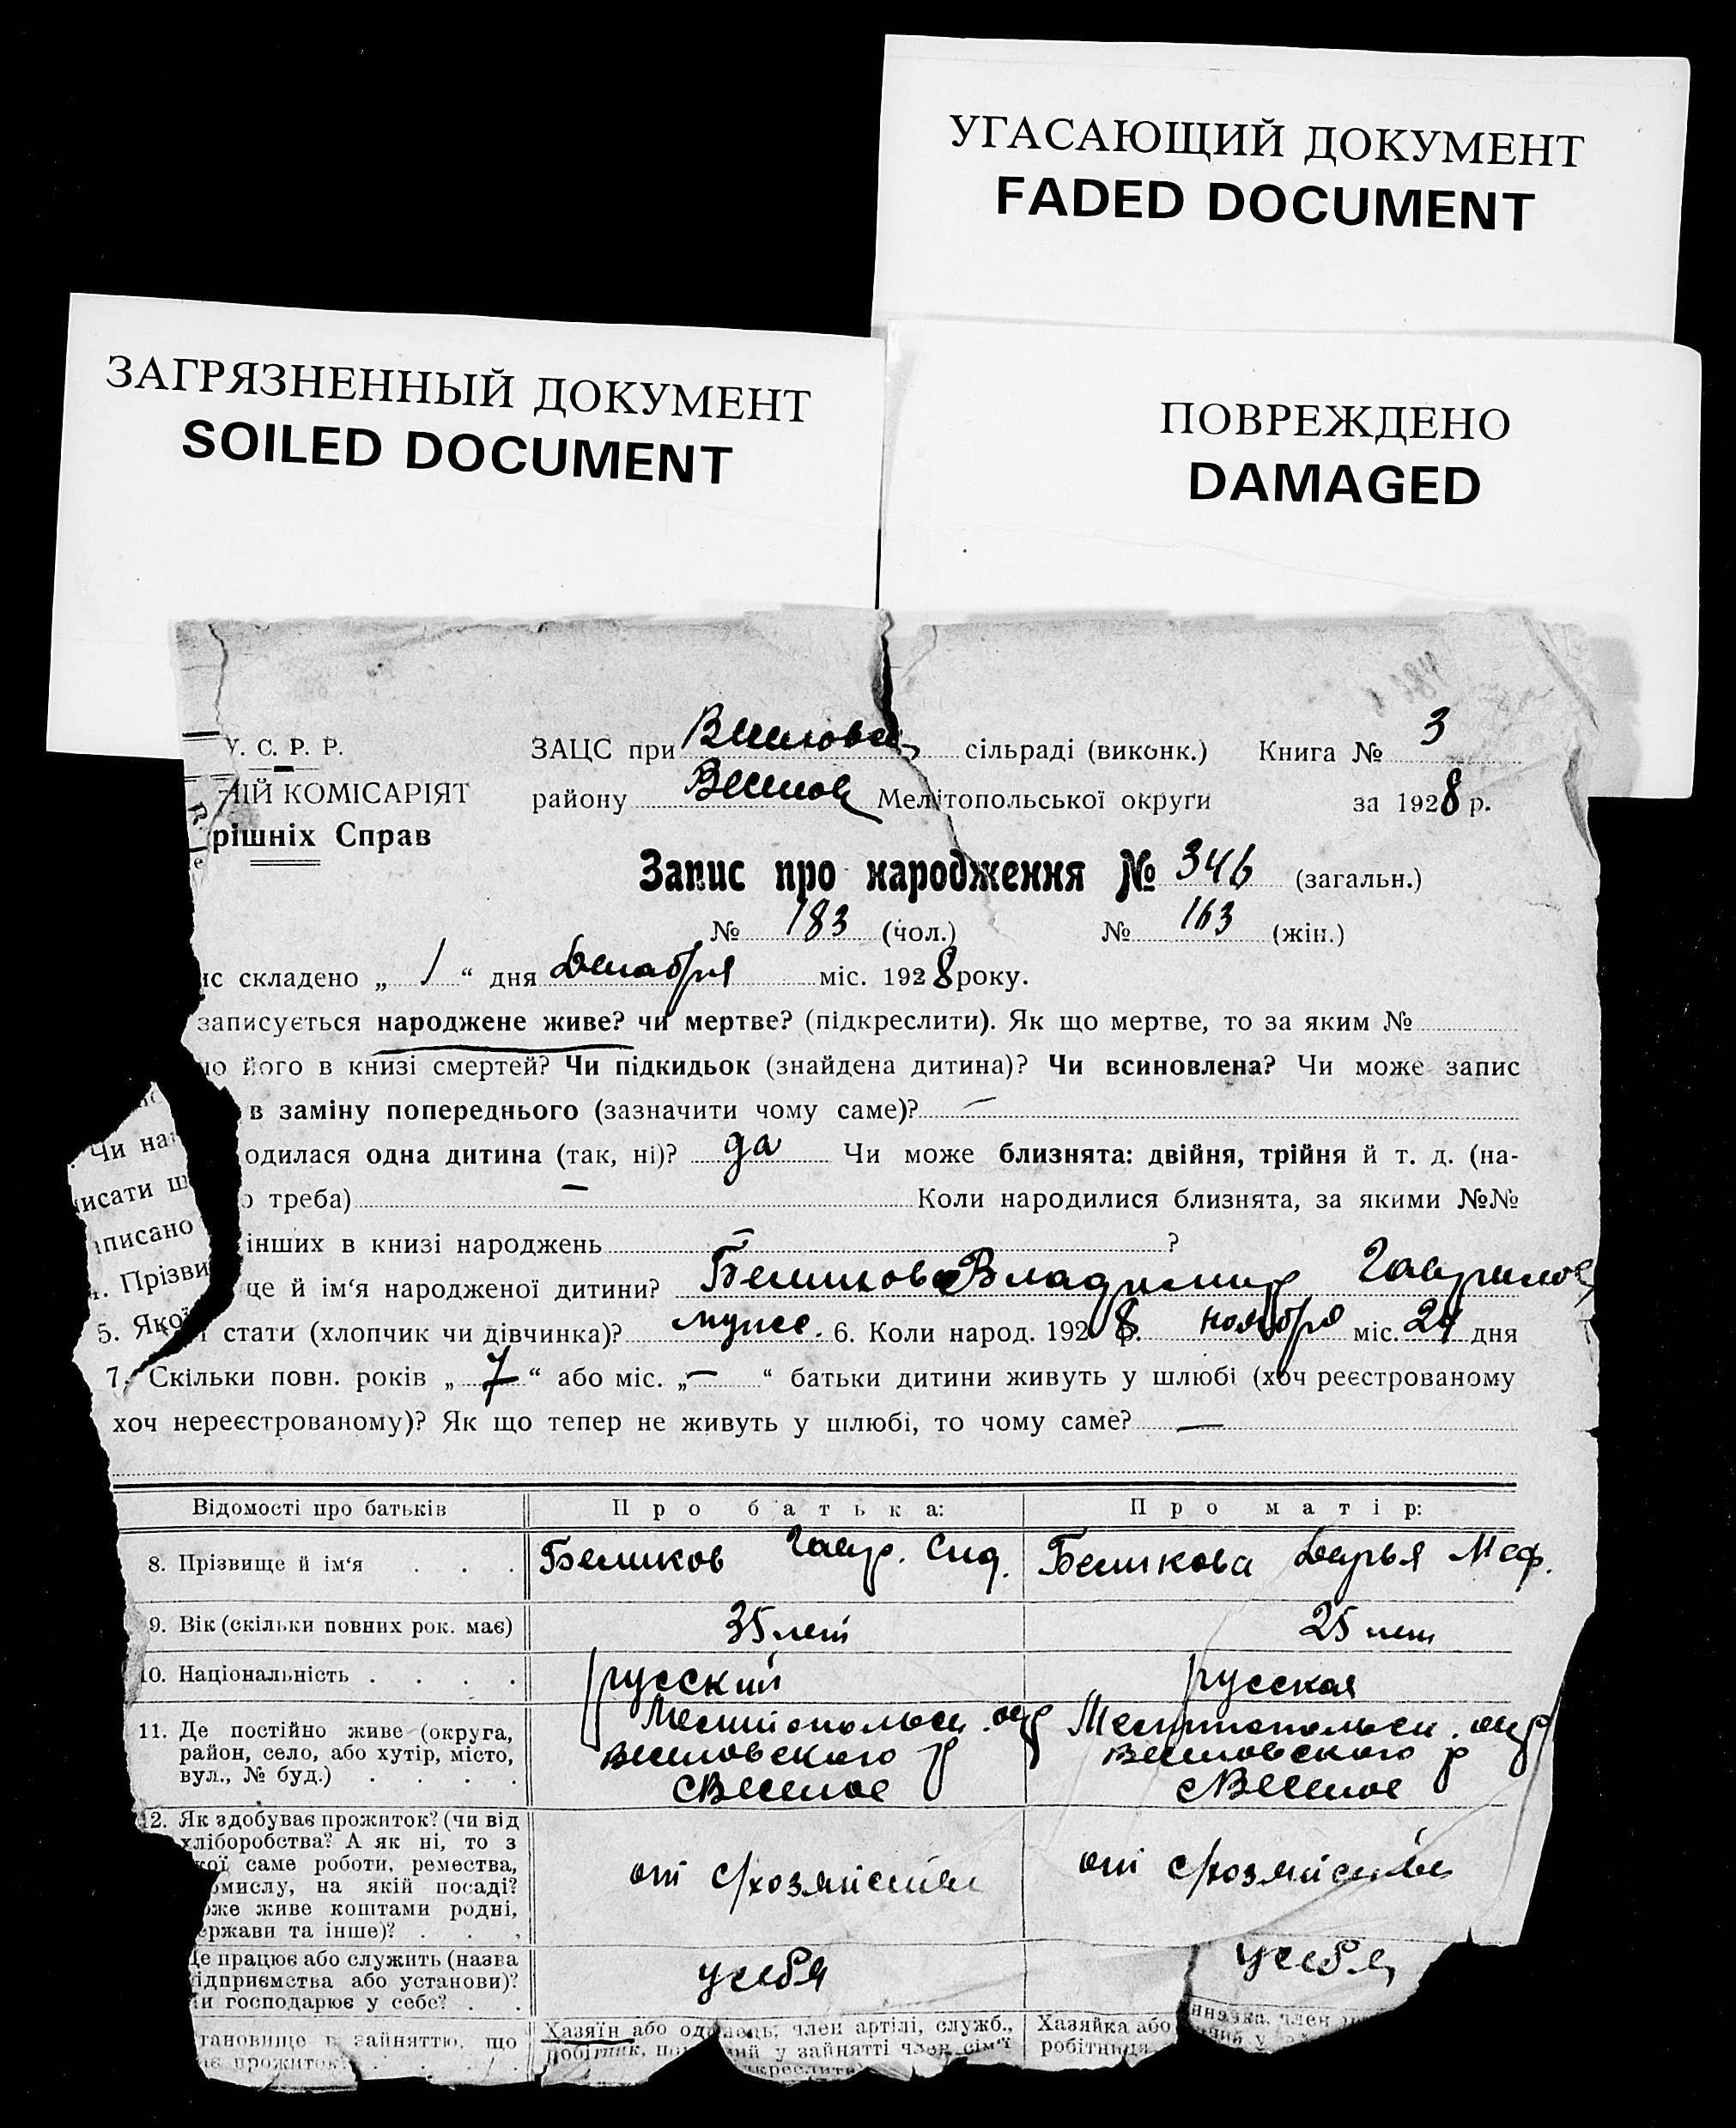 УГАСАЮЩИЙ ДОКУМЕНТ
FADED DOCUMENT
ЗАГРЯЗНЕННЫЙ ДОКУМЕНТ
SOILED DOCUMENT
ПОВРЕЖДЕНО
DAMAGED
У. С. Р. Р.
ЗАЦС при Веселовск сільраді (виконк.) Книга № 3
НІЙ КОМІСАРІЯТ
району Веселов Мелітопольської округи за 1928 р.
рішніх Справ
Запис про народження № 346 (загальн.)
№ 183 (чол.) № 163 (жін.)
ис складено „ 1 “ дня Декабря міс. 1928 року.
записується народжене живе? чи мертве? (підкреслити). Як що мертве, то за яким №
но його в книзі смертей? Чи підкидьок (знайдена дитина)? Чи всиновлена? Чи може запис
в заміну попереднього (зазначити чому саме)? —
Чи на
одилася одна дитина (так, ні)? да Чи може близнята: двійня, трійня й т. д. (на-
исати щ
о треба) — Коли народилися близнята, за якими №№
писано
інших в книзі народжень — ?
4. Прізви
це й ім‘я народженої дитини? Беликов Владимир Гаврилов
5. Якої стати (хлопчик чи дівчинка)? мужс. 6. Коли народ. 1928 р. ноября міс. 24 дня
7. Скільки повн. років „ 7 “ або міс. „ — “ батьки дитини живуть у шлюбі (хоч реєстрованому
хоч нереєстрованому)? Як що тепер не живуть у шлюбі, то чому саме? —
Відомості про батьків Про батька: Про матір:
8. Прізвище й ім‘я . . . Беликов Гавр. Сид. Беликова Дарья Меф.
9. Вік (скільки повних рок. має) 35 лет 25 лет
10. Національність . . . . русский русская
11. Де постійно живе (округа, район, село, або хутір, місто, вул., № буд.) . . . .
Мелитопольск. окр Мелитопольск. окр
Веселовского р Веселовского р
с Веселое с Веселое
12. Як здобуває прожиток? (чи від
хліборобства? А як ні, то з
якої саме роботи, ремества,
омислу, на якій посаді?
оже живе коштами родні,
ержави та інше)? . . .
от с/хозяйства от с/хозяйства
Де працює або служить (назва
ідприємства або установи)?
и господарює у себе? . .
у себя у себя
тановище в зайняттю, що
ає прожиток?
Хазяїн або одинець, член артілі, служб.,
робітник, у зайнятті член сім‘ї
Хазяйка або
робітниця